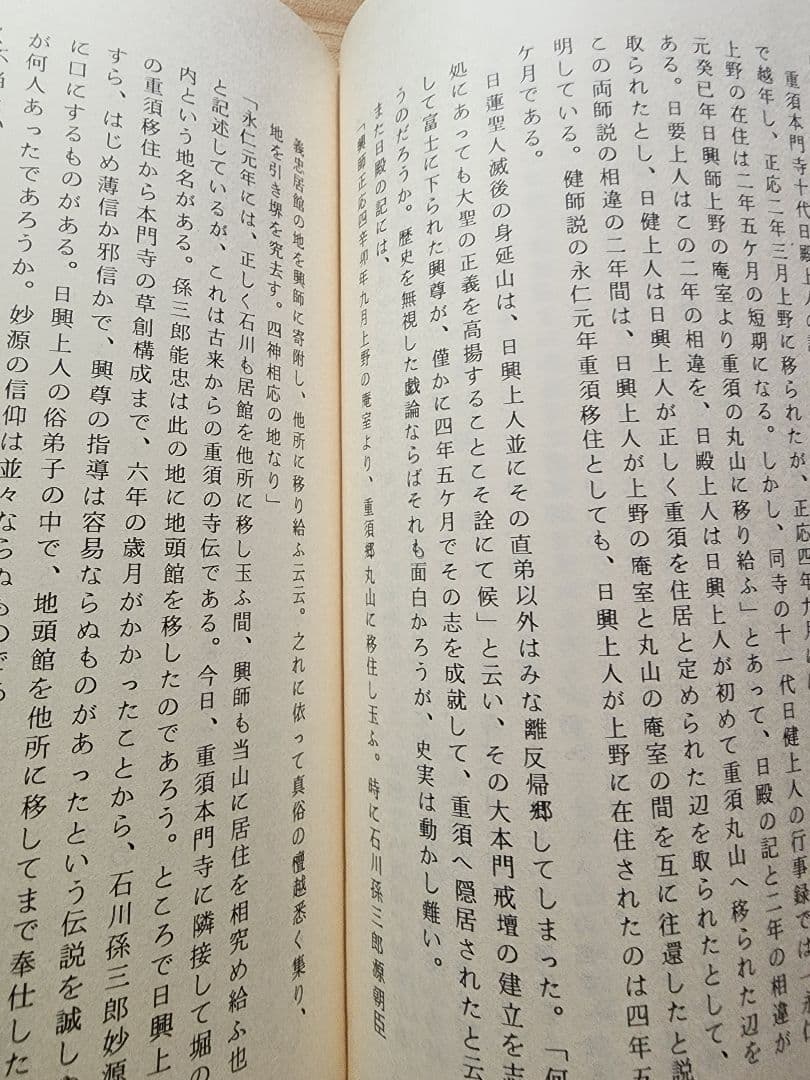 重須本門寺十代日殿上
で越年し、正応二年三月上野に移られたが、正応四年九月
上野の在住は二年五ケ月の短期になる。しかし、同寺の十一代日健上人の行事録では「永仁
元癸巳年日興師上野の庵室より重須の丸山に移り給ふ」とあって、日殿の記と二年の相違が
ある。日要上人はこの二年の相違を、日殿上人は日興上人が初めて重須丸山へ移られた辺を
取られたとし、日健上人は日興上人が正しく重須を住居と定められた辺を取られたとして、
この両師説の相違の二年間は、日興上人が上野の庵室と丸山の庵室の間を互に往還したと説
明している。健師説の永仁元年重須移住としても、日興上人が上野に在住されたのは四年五
ケ月である。
日蓮聖人滅後の身延山は、日興上人並にその直弟以外はみな離反帰郷してしまった。「何
処にあっても大聖の正義を高揚することこそ詮にて候」と云い、その大本門戒壇の建立を志
して富士に下られた興尊が、僅かに四年五ケ月でその志を成就して、重須へ隠居されたと云
うのだろうか。歴史を無視した戯論ならばそれも面白かろうが、史実は動かし難い。
また日殿の記には、
「興師正応四辛卯年九月上野の庵室より、重須郷丸山に移住し玉ふ。時に石川孫三郎源朝臣
義忠居館の地を興師に寄附し、他所に移り給ふ云云。之れに依って真俗の檀越悉く集り、
地を引き堺を究去す。四神相応の地なり」
「永仁元年には、正しく石川も居館を他所に移し玉ふ間、興師も当山に居住を相究め給ふ也
と記述しているが、これは古来からの重須の寺伝である。今日、重須本門寺に隣接して堀の
内という地名がある。孫三郎能忠は此の地に地頭館を移したのであろう。ところで日興上
の重須移住から本門寺の草創構成まで、六年の歳月がかかったことから、石川孫三郎妙源
すら、はじめ薄信か邪信かで、興尊の指導は容易ならぬものがあったという伝説を誠し
に口にするものがある。日興上人の俗弟子の中で、地頭館を他所に移してまで奉仕した
が何人あったであろうか。妙源の信仰は並々ならぬものであ